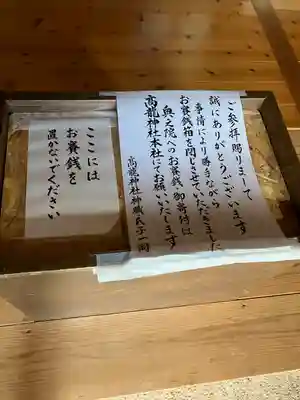 ご参拝賜りまして
誠にありがとうございます
事情により勝手ながら
お賽銭箱を閉じさせていただきました
奥之院へのお賽銭、御寄付は
高龍神社本社にてお願いいたします
高龍神社神職氏子一同
ここには
お賽銭を
置かないでください